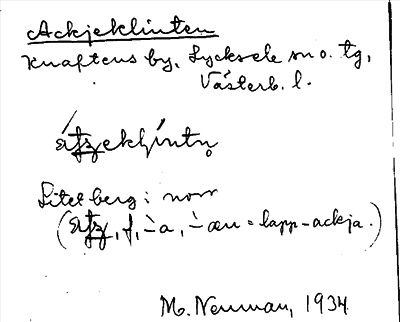 Ackjeklinten
Knaftens by, Lycksele sn o. tg,
Västerb. l.
Litet berg i norr
f, -a, -æn = lapp-ackja.)
M. Neuman, 1934